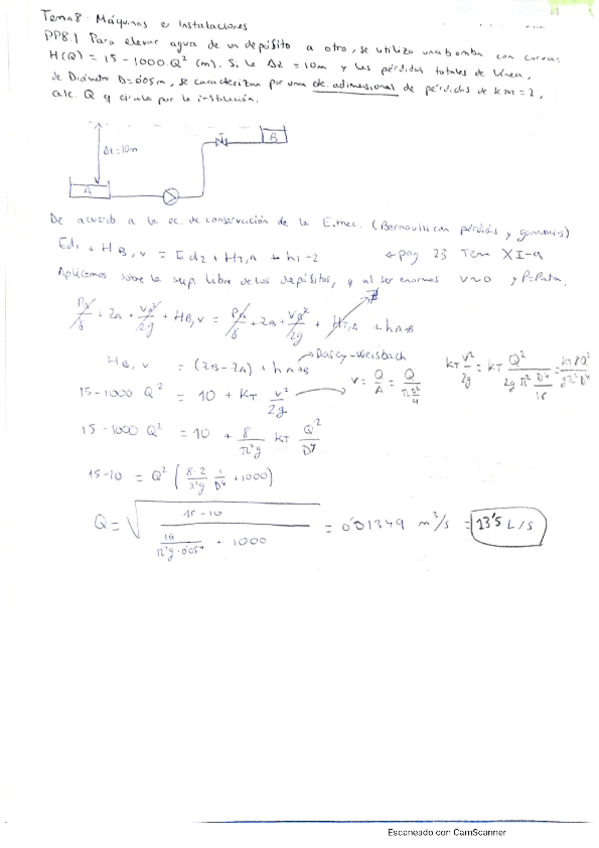 Tema 8: Máquinas e Instalaciones
PP8.1 Para elevar agua de un depósito a otro, se utiliza una bomba con curva:
H(Q) = 15 - 1000 Q² (m). Si la Δz = 10m y las pérdidas totales de línea,
de Diámetro D=0'05m, se caracterizan por una cte. adimensional de pérdidas de km=2,
calc. Q q circula por la instalación.
Δz=10m
A
B
De acuerdo a la ec. de conservación de la E.mec. (Bernouilli con pérdidas y ganancias)
Ed1 + HB,v = Ed2 + HT,A + h1-2 pag 23 Tema XI-a
Aplicamos sobre la sup. libre de los depósitos, y al ser enormes v≈0 y P=Patm.
PA/γ + zA + VA²/2g + HB,v = PB/γ + zB + VB²/2g + HT,A + hA→B
HB,v = (zB-zA) + hA→B Darcy-Weisbach
15-1000 Q² = 10 + KT v²/2g v = Q/A = Q/(π D²/4) KT v²/2g = KT Q²/(2g π² D⁴/16) = KT 8Q²/(gπ²D⁴)
15-1000 Q² = 10 + 8/(π²g) KT Q²/D⁴
15-10 = Q² (8·2/(π²g) 1/D⁴ + 1000)
Q = √((15-10)/(16/(π²g·0'05⁴) + 1000)) = 0'01349 m³/s = 13'5 L/s
Escaneado con CamScanner